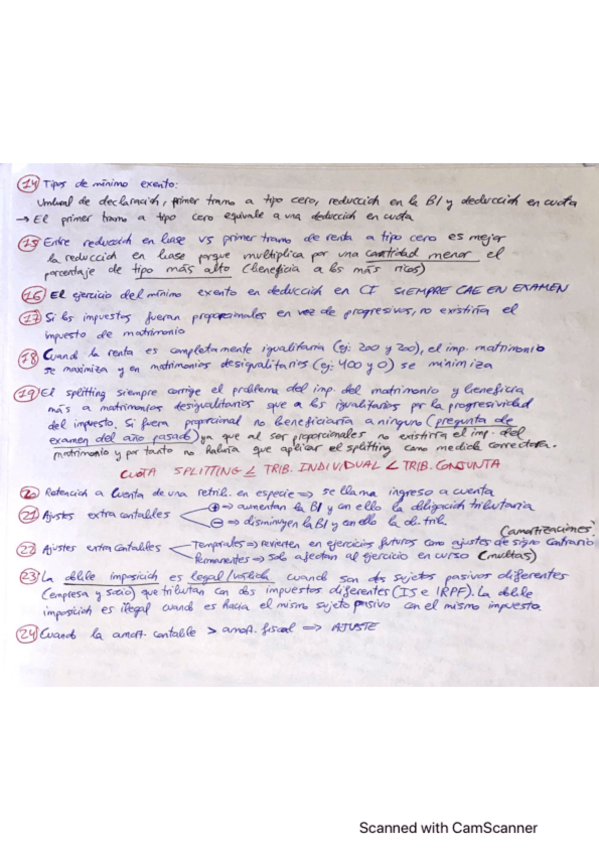 14 Tipos de mínimo exento:
Umbral de declaración, primer tramo a tipo cero, reducción en la BI y deducción en cuota
→ El primer tramo a tipo cero equivale a una deducción en cuota
15 Entre reducción en base vs primer tramo de renta a tipo cero es mejor
la reducción en base porque multiplica por una cantidad menor el
porcentaje de tipo más alto (beneficia a los más ricos)
16 El ejercicio del mínimo exento en deducción en CI SIEMPRE CAE EN EXAMEN
17 Si los impuestos fueran proporcionales en vez de progresivos, no existiría el
impuesto de matrimonio
18 Cuando la renta es completamente igualitaria (ej: 200 y 200), el imp. matrimonio
se maximiza y en matrimonios desigualitarios (ej: 400 y 0) se minimiza
19 El splitting siempre corrige el problema del imp. del matrimonio y beneficia
más a matrimonios desigualitarios que a los igualitarios por la progresividad
del impuesto. Si fuera proporcional no beneficiaría a ninguno (pregunta de
examen del año pasado) ya que al ser proporcionales no existiría el imp. del
matrimonio y por tanto no habría que aplicar el splitting como medida correctora.
CUOTA SPLITTING ≤ TRIB. INDIVIDUAL < TRIB. CONJUNTA
20 Retención a cuenta de una retrib. en especie ⇒ se llama ingreso a cuenta
21 Ajustes extracontables + ⇒ aumentan la BI y con ello la obligación tributaria
− ⇒ disminuyen la BI y con ello la ob. trib.
(amortizaciones)
22 Ajustes extracontables Temporales ⇒ Revierten en ejercicios futuros como ajustes de signo contrario
Permanentes ⇒ Solo afectan al ejercicio en curso (multas)
23 La doble imposición es legal/válida cuando son dos sujetos pasivos diferentes
(empresa y socio) que tributan con dos impuestos diferentes (IS e IRPF). La doble
imposición es ilegal cuando es hacia el mismo sujeto pasivo con el mismo impuesto.
24 Cuando la amort. contable > amort. fiscal ⇒ AJUSTE
Scanned with CamScanner